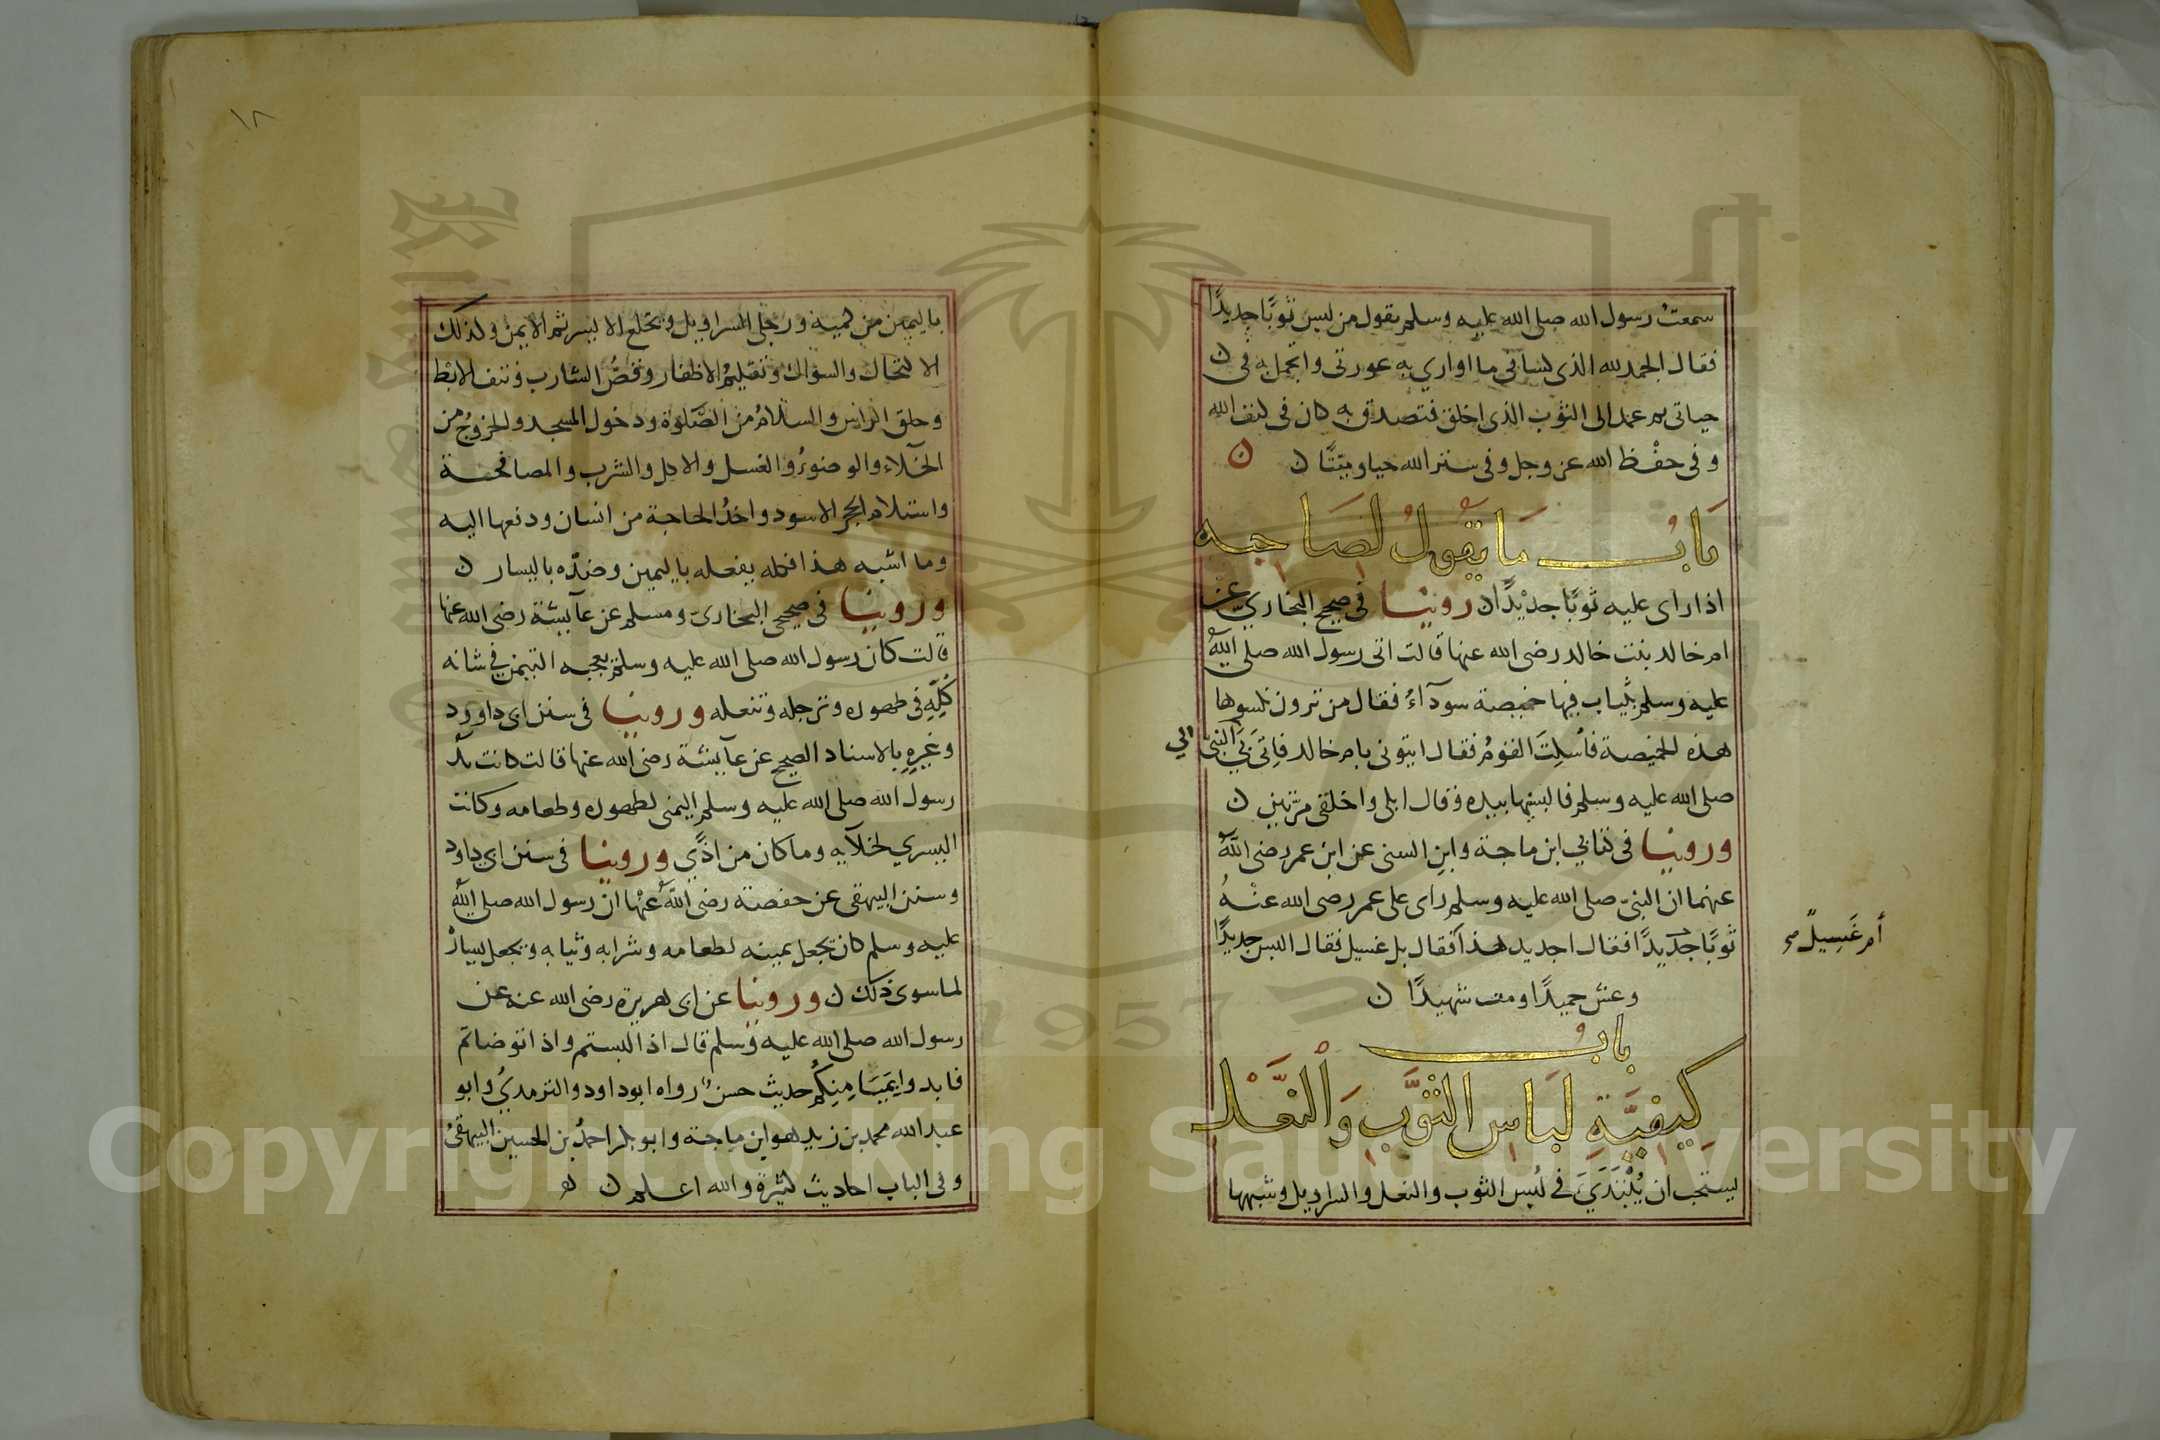 سمعتُ رسول الله صلى الله عليه وسلم يقول من لبس ثوبًا جديدًا
فقال الحمد لله الذى كسانى ما اوارى به عورتى واتجمل به فى ن
حياتى ثم عمد الى الثوب الذى اخلق فتصدق به كان فى كنف الله
وفى حفْظ الله عز وجل وفى ستر الله حيا وميّتًا ن ن
بَابُ مَا يَقُولُ لصَاحبه
اذا راى عليه ثوبًا جديْدًا ن روينا فى صحيح البخاريّ عن
ام خالد بنت خالد رضى الله عنها قالت اتى رسول الله صلى الله
عليه وسلم بثياب فيها خميصة سودآءُ فقال من ترون نكسوها
هذه الخميصة فأُسكِتَ القومُ فقال ايتونى بام خالد فاِتىَ بى النبى
الى
صلى الله عليه وسلم فالبسنيها بيده وقال ابلى واخلقى مرّتين ن
وروينا فى كتابي ابن ماجة وابن السنى عن ابن عمر رضى اللهُ
عنهما ان النبىّ صلى الله عليه وسلم راى على عمر رضى الله عنْهُ
ثوبًا جديدًا فقال اجديد هذا فقال بل غسيل فقال البس جديدًا
أم غَسِيلٌ
وعش حميدًا ومت شهيدًا ن
بابُ
كيفيَّةِ لبَاس الثوَّب وَالنعْل
يستحب ان يُبْتَدَىَ فى لُبْس الثوب والنعل والسراويل وشبهها
١٨
باليمين من كميه ورجلى السراويل ويخلع الايسر ثم الايمن وكذلك
الاكتحال والسواك وتقليمُ الاظفار وقصُّ الشارب ونتف الابْط
وحلق الراس والسلامُ من الصَّلوة ودخول المسجد والخروُج من
الخلآء والوضوءُ والغسل والاكل والشرب والمصافحة
واستلام الحجر الاسود واخذُ الحاجة من انسان ودفعها اليه
وما اشبه هذا فكله يفعله باليمين وضدّه باليسار ن
وروينا فى صحيحى البخارىّ ومسلم عن عآيشة رضى الله عنها
قالت كان رسول الله صلى الله عليه وسلم يعجبه التيمن فى شانه
كُلِّهِ فى طهوره وترجله وتنعله وروينا فى سنن ابى داوود
وغيرِهِ بالاسناد الصحيح عن عآيشة رضى الله عنها قالت كانت يدُ
رسول الله صلى الله عليه وسلم اليمنى لطهوره وطعامه وكانت
اليسري لخلآيه وما كان من اذًي وروينا فى سنن ابى داود
وسنن البيهقى عن حفصة رضى اللهُ عنْها ان رسول الله صلى اللهُ
عليه وسلم كان يجعل يمينه لطعامه وشرابه وثيابه ويجعل يسارَهُ
لما سوى ذلك ن وروينا عن ابى هريرة رضى الله عنه عن
رسول الله صلى الله عليه وسلم قال اذا لبستم واذا توضاتم
فابدوا بِمَيَامِنِكُمْ حديث حسنٌ رواه ابو داود والترمذيُ وابو
عبد الله محمد بن زيد هو ابن ماجة وابو بكر احمدُ بن الحسين البيهقىُ
وفى الباب احاديث كثيرة والله اعلم ن
Copyright © King Saud University
1957